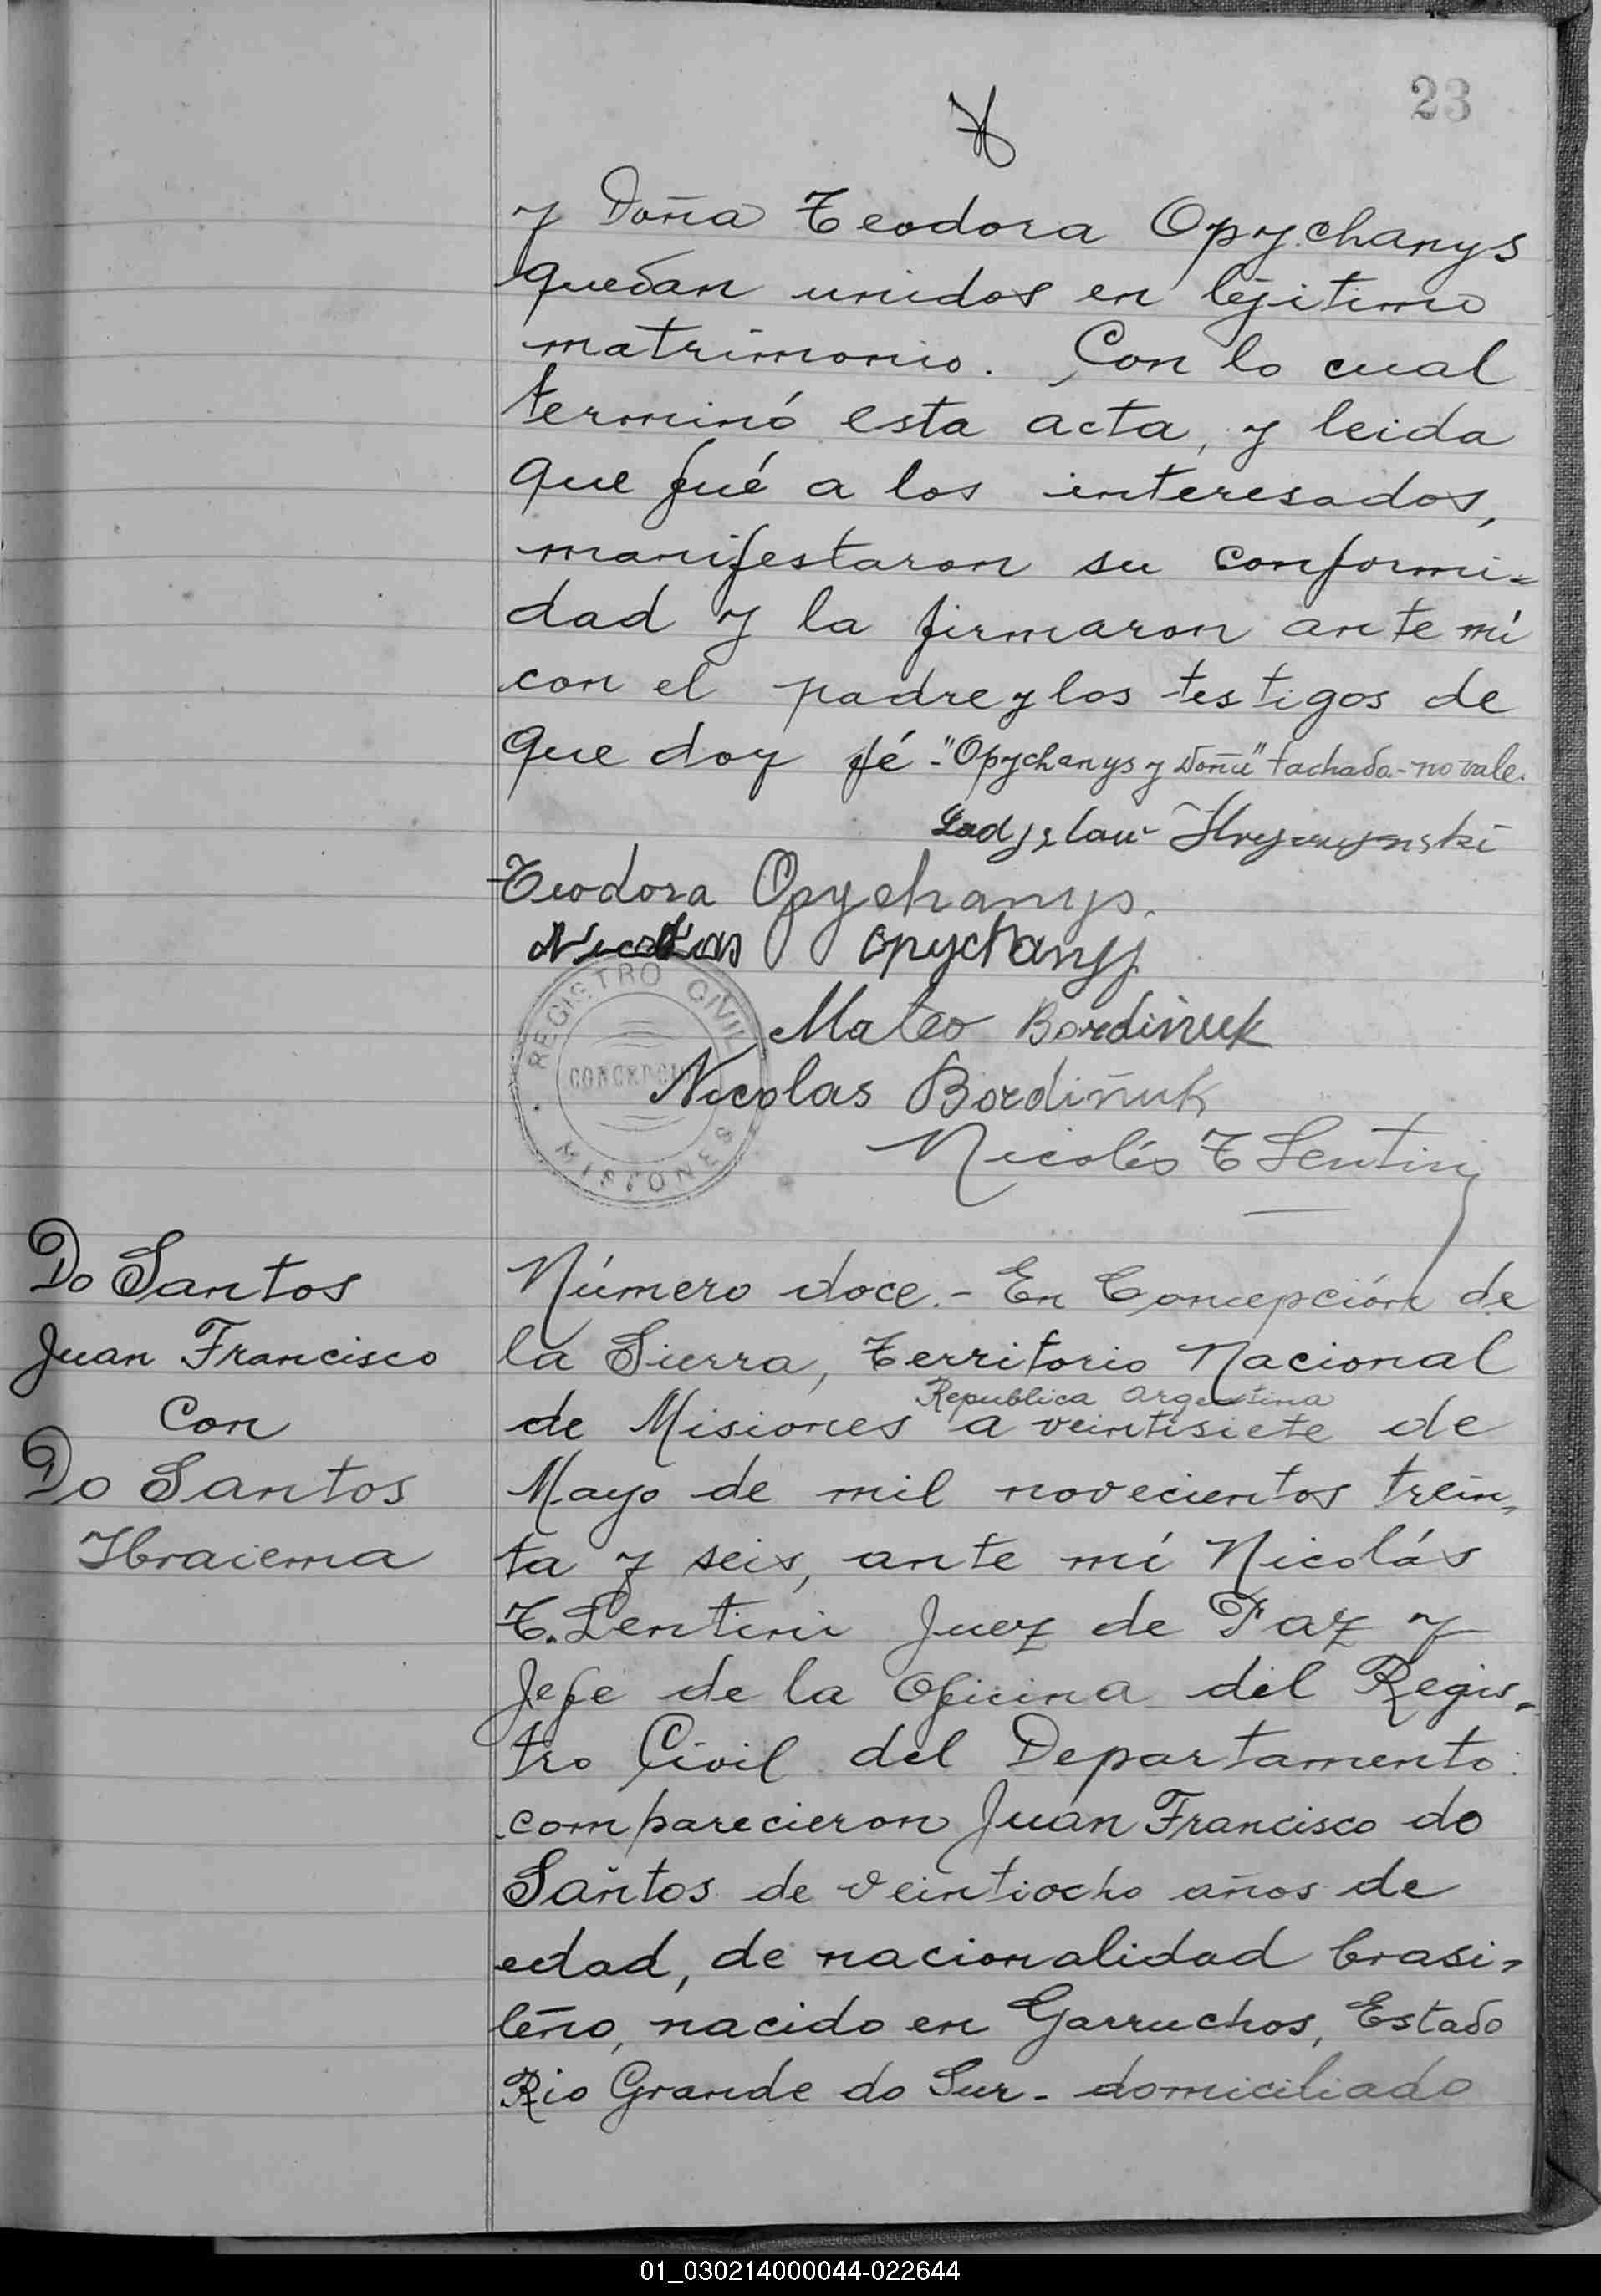 23
y Doña Teodora Opychanys
quedan unidos en lejitimo
matrimonio. Con lo cual
terminó esta acta, y leida
que fué a los interesados,
manifestaron su conformi=
dad y la firmaron ante mi
con el padre y los testigos de
que doy fé-"Opychanys y Doña" tachado-no vale.
Teodora Opychanys.
Nicolas Opychanys
Mateo Bordiñuk
Nicolas Bordiñuk
Nicolás T Lentini
REGISTRO CIVIL
CONCEPCION
MISIONES
Do Santos
Juan Francisco
Con
Do Santos
Ibraiema
Número doce.- En Concepción de
la Sierra, Territorio Nacional
Republica Argentina
de Misiones a veintisiete de
Mayo de mil novecientos trein-
ta y seis, ante mí Nicolás
T. Lentini Juez de Paz y
Jefe de la Oficina del Regis-
tro Civil del Departamento:
comparecieron Juan Francisco do
Santos de veintiocho años de
edad, de nacionalidad brasi-
leño, nacido en Garruchos, Estado
Rio Grande do Sur- domiciliado
01_030214000044-022644